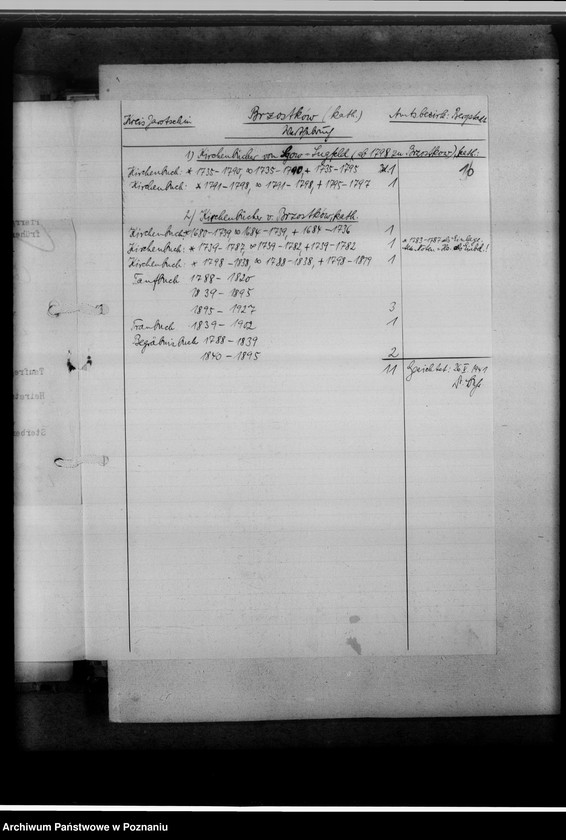 Kreis Jarotschin
Brzostków (kath.)
Amtsbezirk: Bergstadt
1) Kirchenbücher von Lgow - Lugfeld, (ab 1798 zu Brzostkow), kath:
Kirchenbuch * 1735-1790, ∞ 1735-1790, + 1735-1795 1 10
Kirchenbuch: * 1791-1798, ∞ 1791-1798, + 1795-1797 1
2) Kirchenbücher v. Brzostków, kath.
Kirchenbuch * 1680-1739 ∞ 1684-1739, + 1684-1736 1
Kirchenbuch: * 1739-1787, ∞ 1739-1782, + 1739-1782 1
* 1783-1787 als Einlage
Kirchenbuch: * 1798-1838, ∞ 1788-1838, + 1798-1819 1
Taufbuch 1788-1820
1839-1895
1895-1927 3
Traubuch 1839-1902 1
Begräbnisbuch 1788-1839
1840-1895 2
11
Gesichtet: 26 V 1941
Archiwum Państwowe w Poznaniu